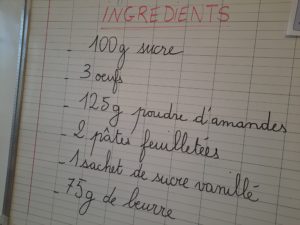 INGREDIENTS
- 100g sucre
- 3 oeufs
- 125g poudre d'amandes
- 2 pâtes feuilletées
- 1 sachet de sucre vanillé
- 75g de beurre